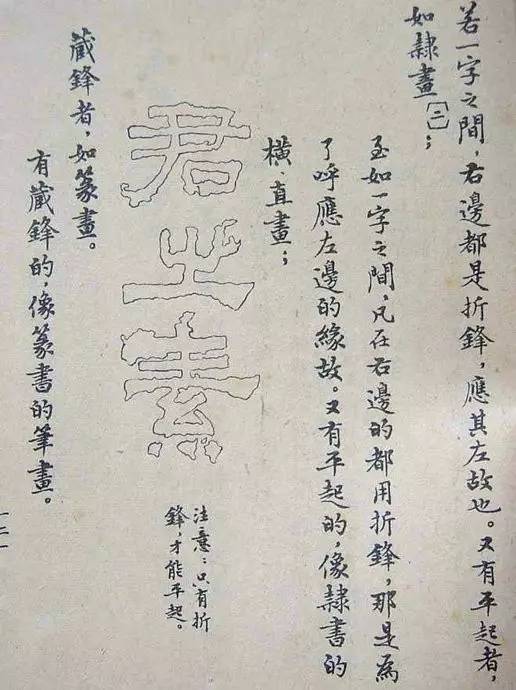 若一字之間，右邊都是折鋒，應其左故也。又有平起者，
如隸畫〔二〕；
至如一字之間，凡在右邊的都用折鋒，那是為
了呼應左邊的緣故。又有平起的，像隸書的
橫、直畫；
君㞢素
注意：只有折
鋒，才能平起。
藏鋒者，如篆畫。
有藏鋒的，像篆書的筆畫。